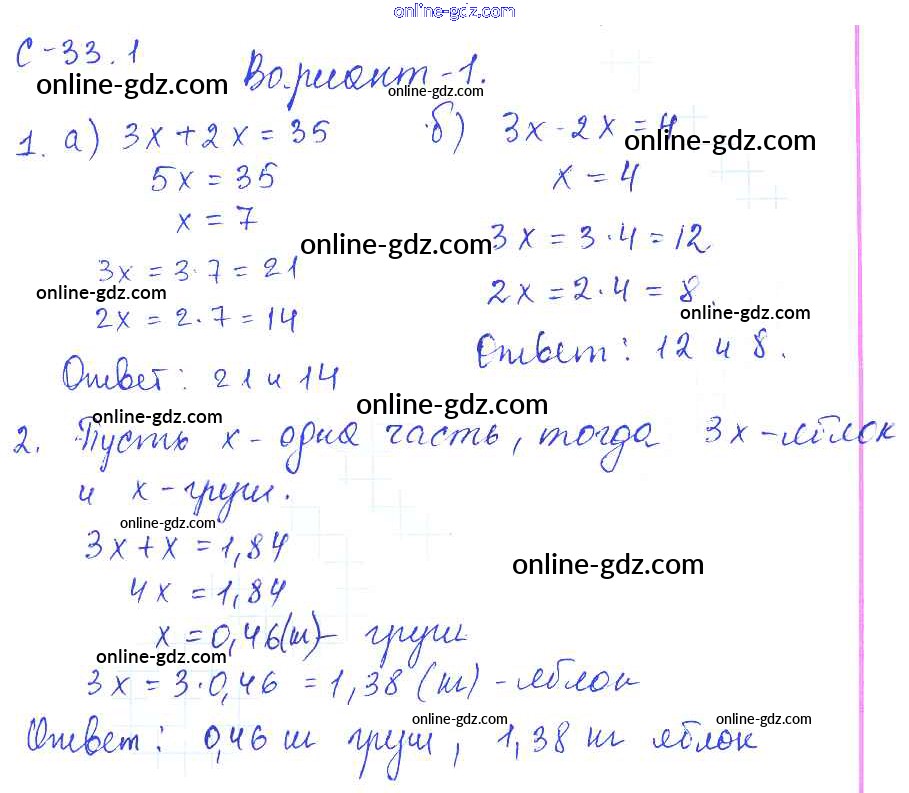 online-gdz.com
С-33.1
online-gdz.com Вариант-1.
online-gdz.com
1. а) 3x + 2x = 35
5x = 35
x = 7
3x = 3·7 = 21
online-gdz.com
2x = 2·7 = 14
Ответ: 21 и 14
б) 3x - 2x = 4
online-gdz.com
x = 4
online-gdz.com
3x = 3·4 = 12
2x = 2·4 = 8
online-gdz.com
Ответ: 12 и 8.
online-gdz.com
online-gdz.com
2. Пусть x - одна часть, тогда 3x - яблок
и x - груш.
online-gdz.com
3x + x = 1,84
online-gdz.com
4x = 1,84
x = 0,46(т) - груш
online-gdz.com
3x = 3·0,46 = 1,38 (т) - яблок
online-gdz.com
online-gdz.com
online-gdz.com
Ответ: 0,46 т груш, 1,38 т яблок